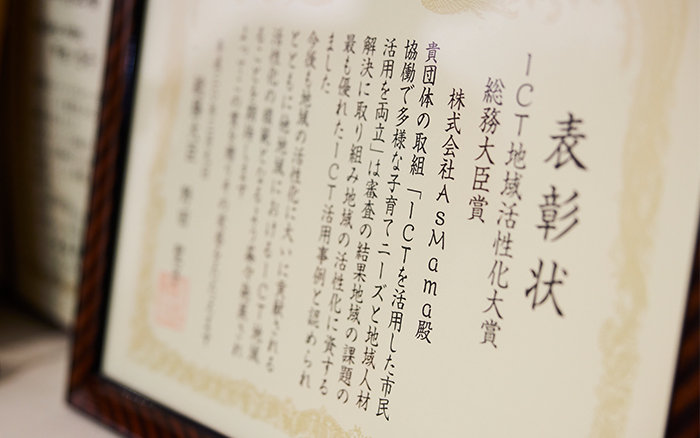 表彰状
ICT地域活性化大賞
総務大臣賞
株式会社AsMama殿
貴団体の取組「ICTを活用した市民
協働で多様な子育てニーズと地域人材
活用を両立」は審査の結果地域の課題の
解決に取り組み地域の活性化に資する
最も優れたICT活用事例と認められ
ました
今後も地域の活性化に大いに貢献される
とともに他地域におけるICT地域
活性化の